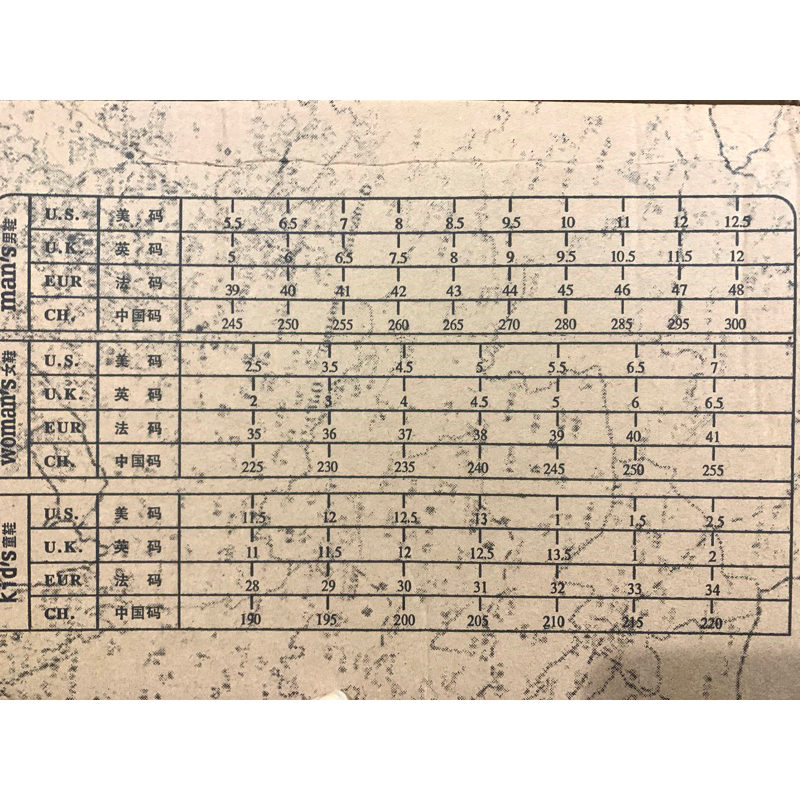 man's 男鞋
U.S. 美 码 5.5 6.5 7 8 8.5 9.5 10 11 12 12.5
U.K. 英 码 5 6 6.5 7.5 8 9 9.5 10.5 11.5 12
EUR 法 码 39 40 41 42 43 44 45 46 47 48
CH. 中国码 245 250 255 260 265 270 280 285 295 300
woman's 女鞋
U.S. 美 码 2.5 3.5 4.5 5 5.5 6.5 7
U.K. 英 码 2 3 4 4.5 5 6 6.5
EUR 法 码 35 36 37 38 39 40 41
CH. 中国码 225 230 235 240 245 250 255
kid's 童鞋
U.S. 美 码 11.5 12 12.5 13 1 1.5 2.5
U.K. 英 码 11 11.5 12 12.5 13.5 1 2
EUR 法 码 28 29 30 31 32 33 34
CH. 中国码 190 195 200 205 210 215 220